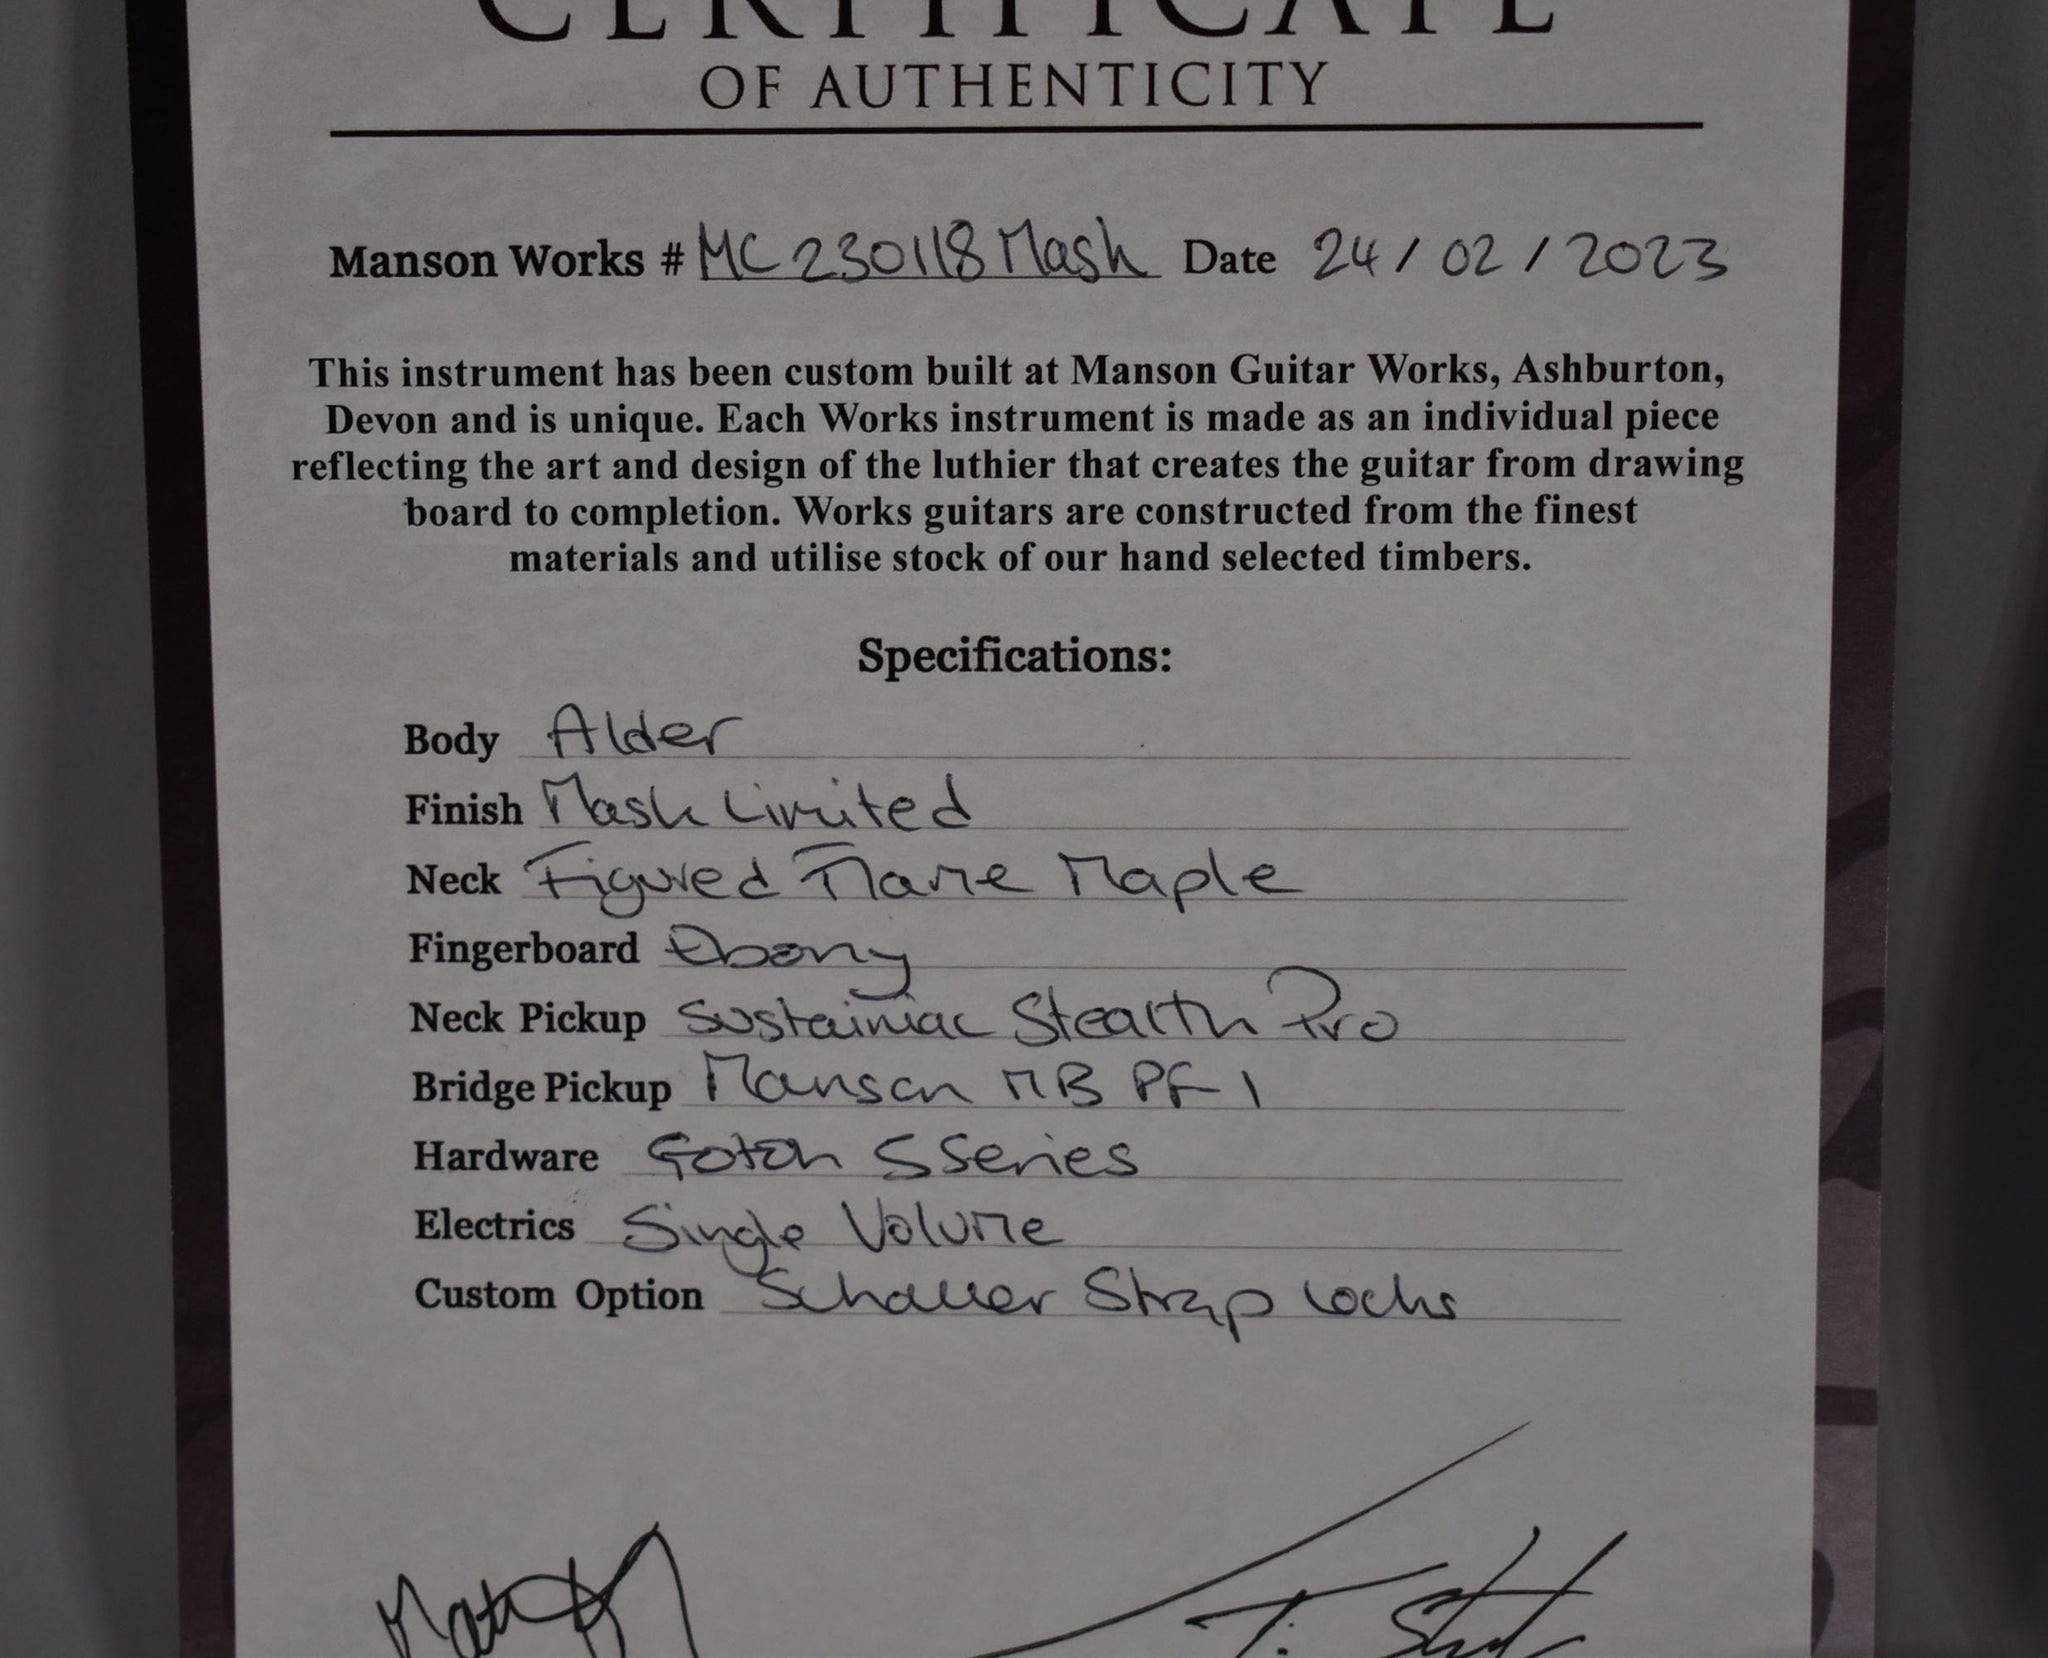 CERTIFICATE
OF AUTHENTICITY
Manson Works # MC230118Mash Date 24 / 02 / 2023
This instrument has been custom built at Manson Guitar Works, Ashburton,
Devon and is unique. Each Works instrument is made as an individual piece
reflecting the art and design of the luthier that creates the guitar from drawing
board to completion. Works guitars are constructed from the finest
materials and utilise stock of our hand selected timbers.
Specifications:
Body Alder
Finish Mash Limited
Neck Figured Flame Maple
Fingerboard Ebony
Neck Pickup Sustainiac Stealth Pro
Bridge Pickup Manson MB PF-1
Hardware Gotoh S Series
Electrics Single Volume
Custom Option Schaller Strap Locks